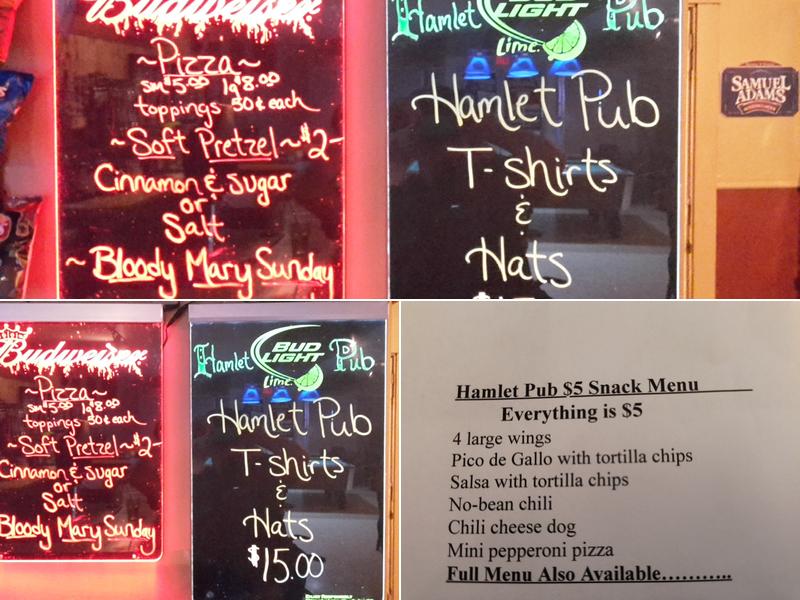 Budweiser
~Pizza~
sm $5.00 lg 8.00
toppings 50¢ each
~Soft Pretzel~$2-
Cinnamon & Sugar
or
Salt
~Bloody Mary Sunday
Hamlet BUD LIGHT Pub
Lime.
Hamlet Pub
T-shirts
&
Hats
SAMUEL
ADAMS
Budweiser
~Pizza~
sm $5.00 lg 8.00
toppings 50¢ each
~Soft Pretzel~$2-
Cinnamon & Sugar
or
Salt
Bloody Mary Sunday
Hamlet BUD LIGHT Pub
Lime.
Hamlet Pub
T-shirts
&
Hats
$15.00
Hamlet Pub $5 Snack Menu
Everything is $5
4 large wings
Pico de Gallo with tortilla chips
Salsa with tortilla chips
No-bean chili
Chili cheese dog
Mini pepperoni pizza
Full Menu Also Available………..